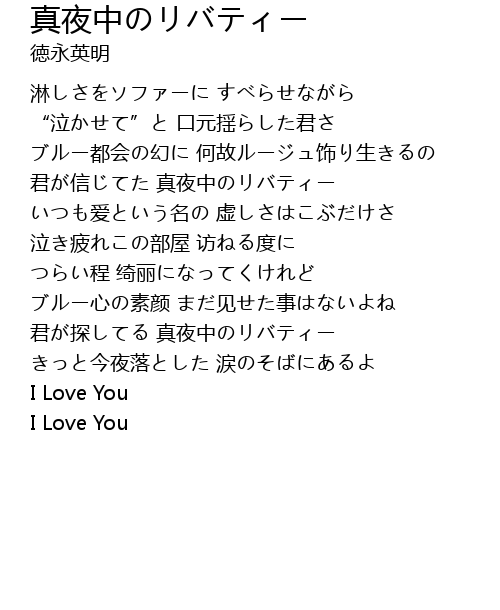 真夜中のリバティー
徳永英明
淋しさをソファーに すべらせながら
“泣かせて”と 口元揺らした君さ
ブルー都会の幻に 何故ルージュ饰り生きるの
君が信じてた 真夜中のリバティー
いつも爱という名の 虚しさはこぶだけさ
泣き疲れこの部屋 访ねる度に
つらい程 绮丽になってくけれど
ブルー心の素颜 まだ见せた事はないよね
君が探してる 真夜中のリバティー
きっと今夜落とした 涙のそばにあるよ
I Love You
I Love You